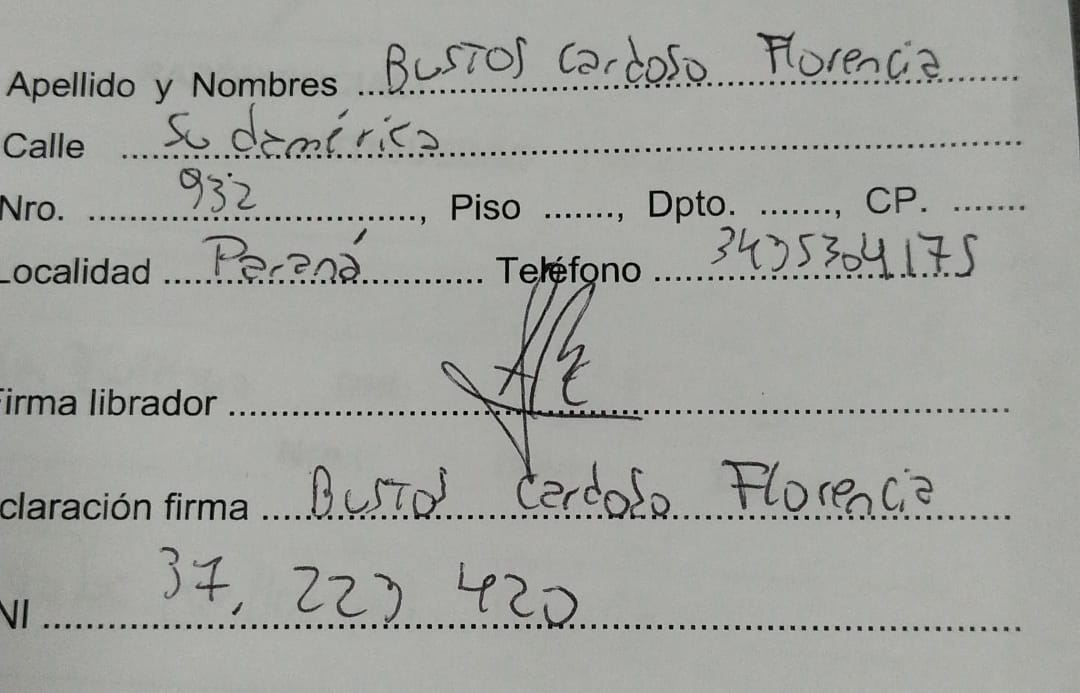 Apellido y Nombres Bustos Cardoso Florencia
Calle Sudamérica
Nro. 932, Piso ......., Dpto. ......., CP. .......
Localidad Paraná Teléfono 3435304175
Firma librador
claración firma Bustos Cardoso Florencia
NI 37,223 420